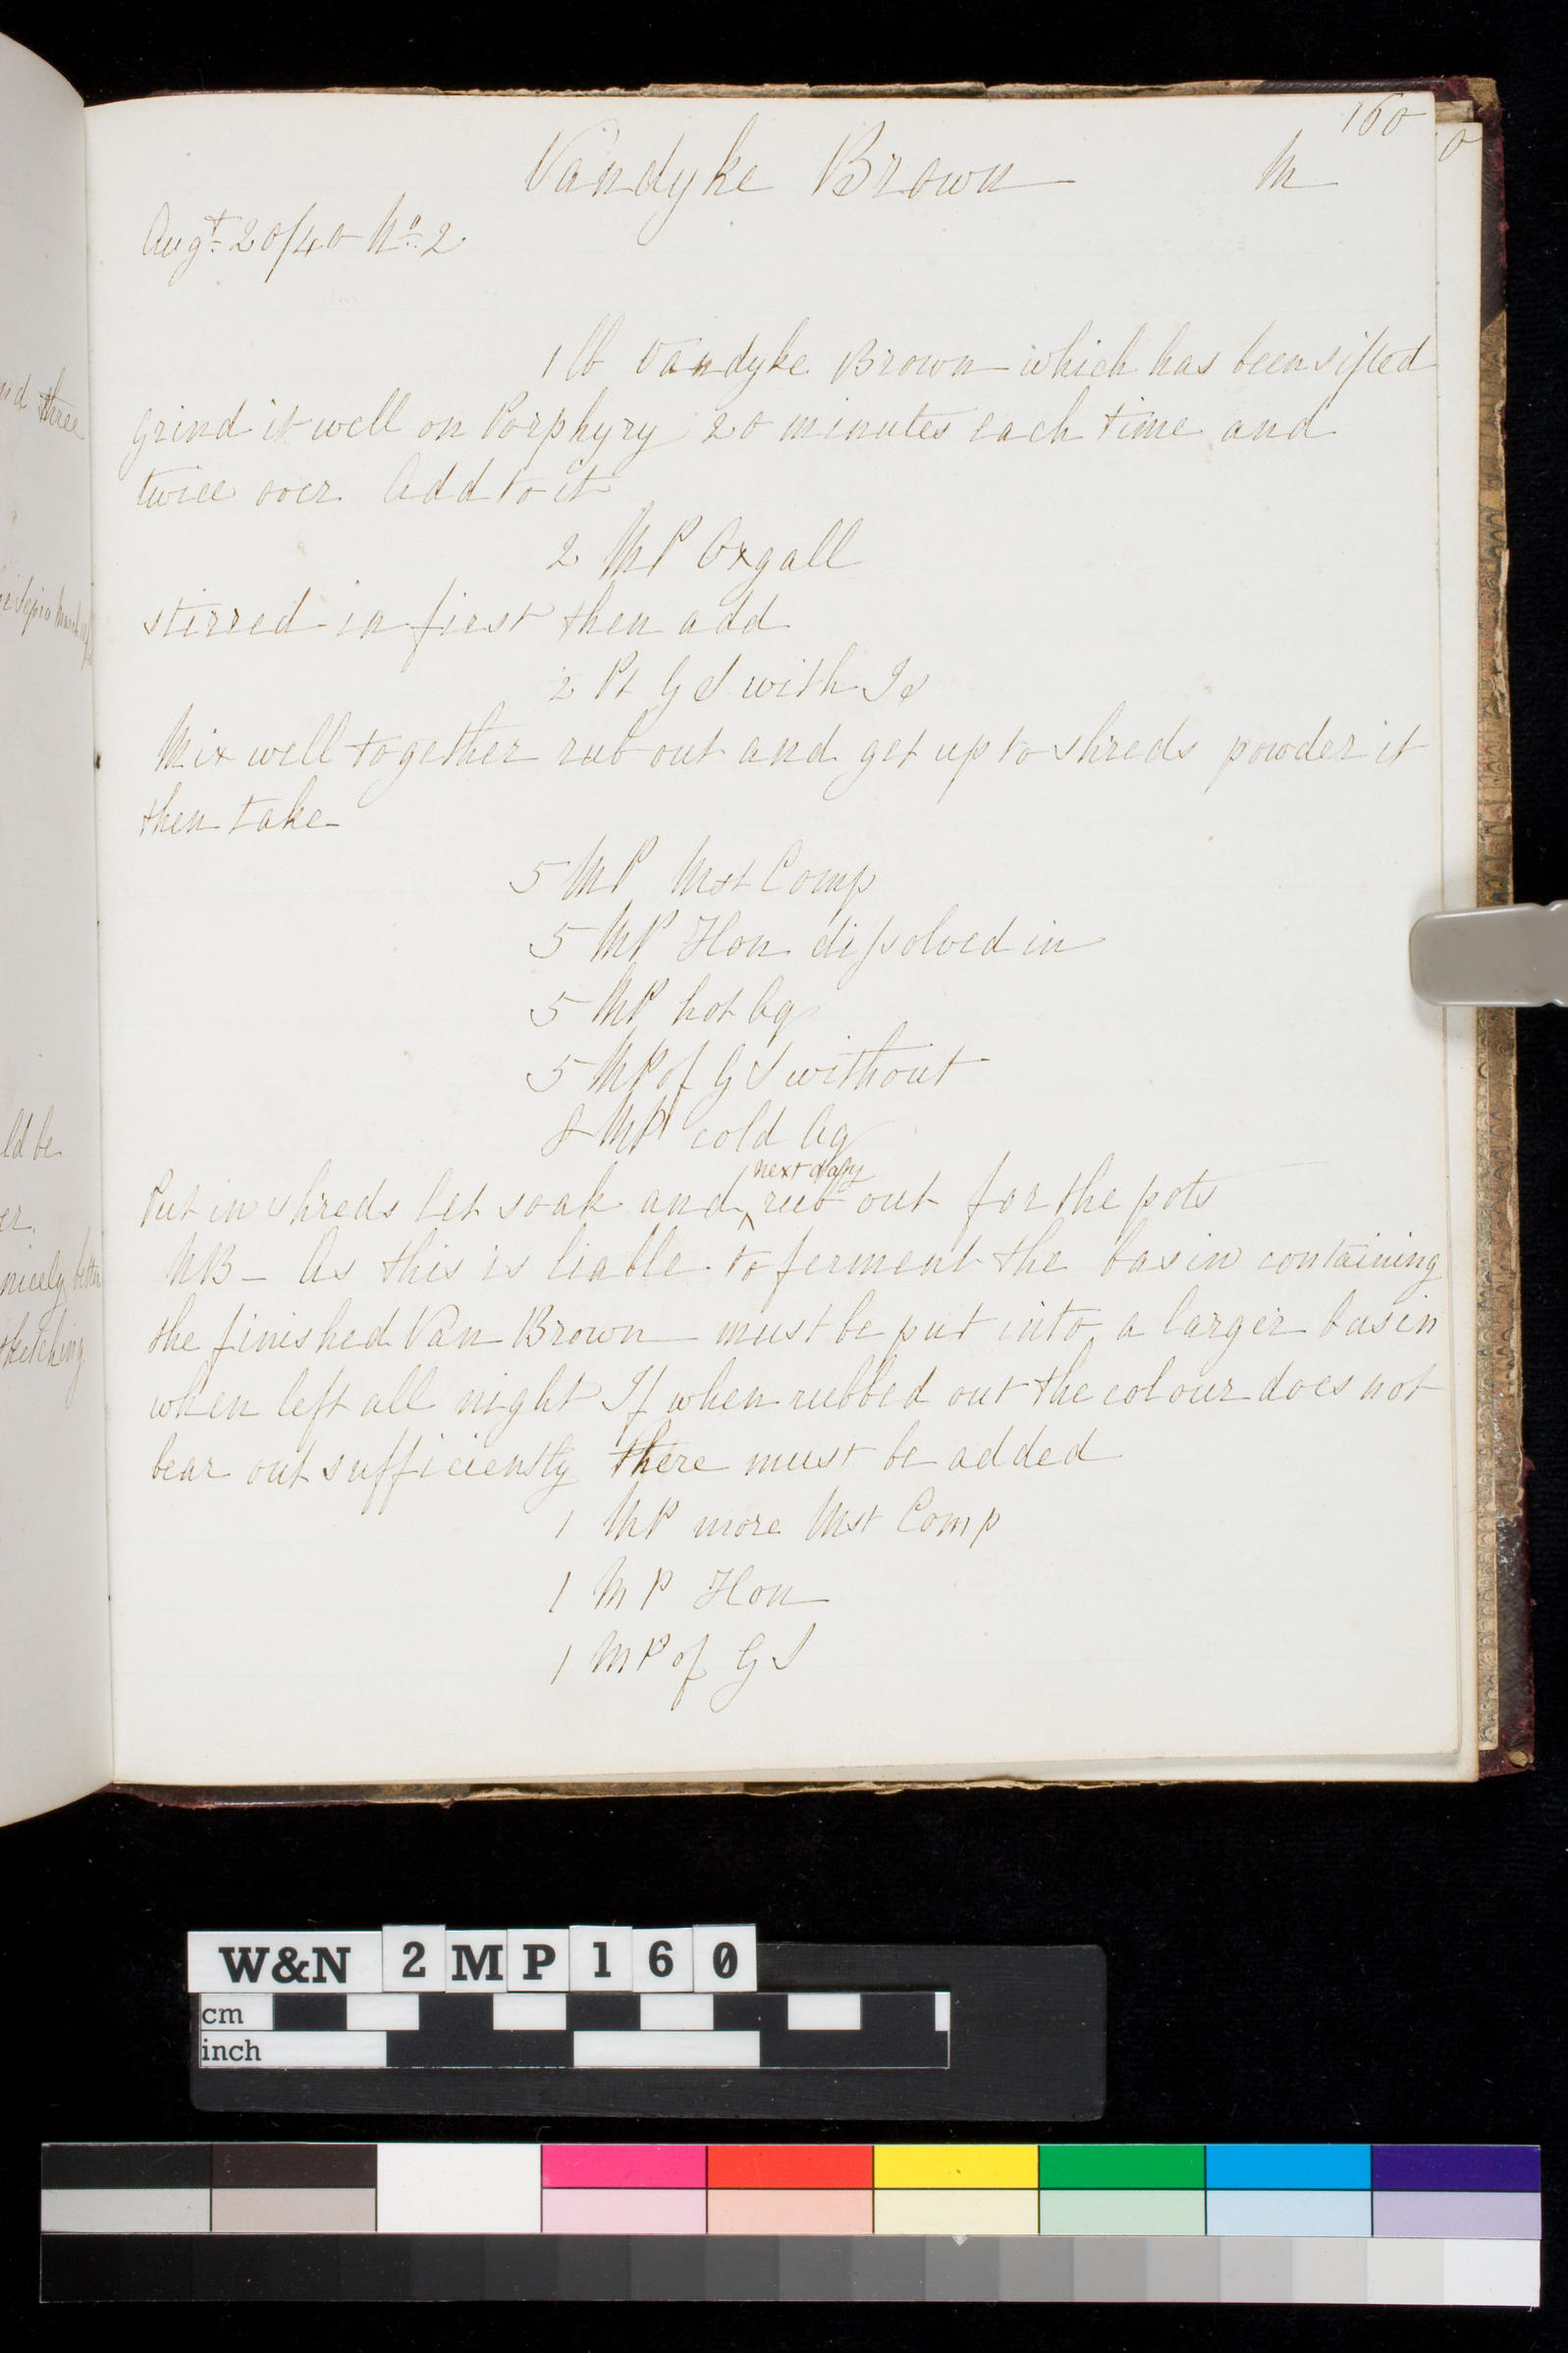 160
Vandyke Brown M
Augt. 20/40 No. 2
1 lb Vandyke Brown which has been sifted
grind it well on Porphyry 20 minutes each time and
twice over Add to it
2 MP Oxgall
stirred in first then add
2 Pt G S with Is
Mix well together rub out and get up to shreds powder it
then take
5 MP Mst Comp
5 MP Hon dissolved in
5 MP hot Aq
5 MP of G S without
8 MP cold Aq
next day
Put in shreds let soak and rub out for the pots
NB - As this is liable to ferment the basin containing
the finished Van Brown must be put into a larger basin
when left all night If when rubbed out the colour does not
bear out sufficiently there must be added
1 MP more Mst Comp
1 MP Hon
1 MP of G S
three
ld be
er
nicely better
sketching
W&N 2MP160
cm
inch